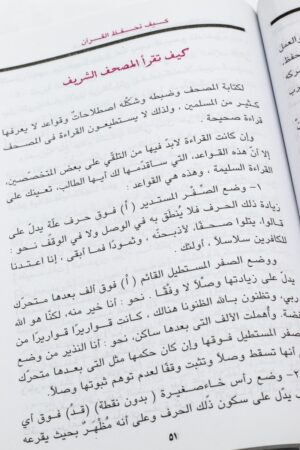 كيف تحفظ القرآن
كيف تقرأ المصحف الشريف
لكتابة المصحف وضبطه وشكله اصطلاحات وقواعد لا يعرفها
كثير من المسلمين ، ولذلك لا يستطيعون القراءة فى المصحف
قراءة صحيحة .
وإن كانت القراءة لابد فيها من التلقي على بعض المتخصصين،
إلا أنّ هذه القواعد، التي سأقدمها لك أيها الطالب، تعينك على
القراءة السليمة ، وهذه هي القواعد :
١- وضع الصِّفْر المستدير ( أْ) فوق حرف علّة يدلّ على
زيادة ذلك الحرف فلا يُنطق به في الوصل ولا في الوقف نحو :
قالوا، يتلوا صحفًا، لأذبحنّه ، وثمودًا فما أبقى ، إنا أعتدنا
للكافرين سلاسلاً ، أولئك .
ووضع الصفر المستطيل القائم ( أ) فوق ألف بعدها متحرك
يدلّ على زيادتها وصلاً لا وقفًا . نحو : أنا خير منه، لكنّا هو الله
ربي، وتظنون بالله الظنونا هنالك ، كانت قواريرا قواريرا من
فضة. وأهملت الألف التى بعدها ساكن، نحو : أنا النذير من وضع
الصفر المستطيل فوقها وإن كان حكمها مثل التى بعدها متحرك
أنها تسقط وصلاً وتثبت وقفًا لعدم توهم ثبوتها وصلاً.
٢- وضع رأس خاء صغيرة ( بدون نقطة) (قدْ) فوق أي
يدلّ على سكون ذلك الحرف وعلى أنه مُظْهَرٌ بحيث يقرعه
٥١
والعمل